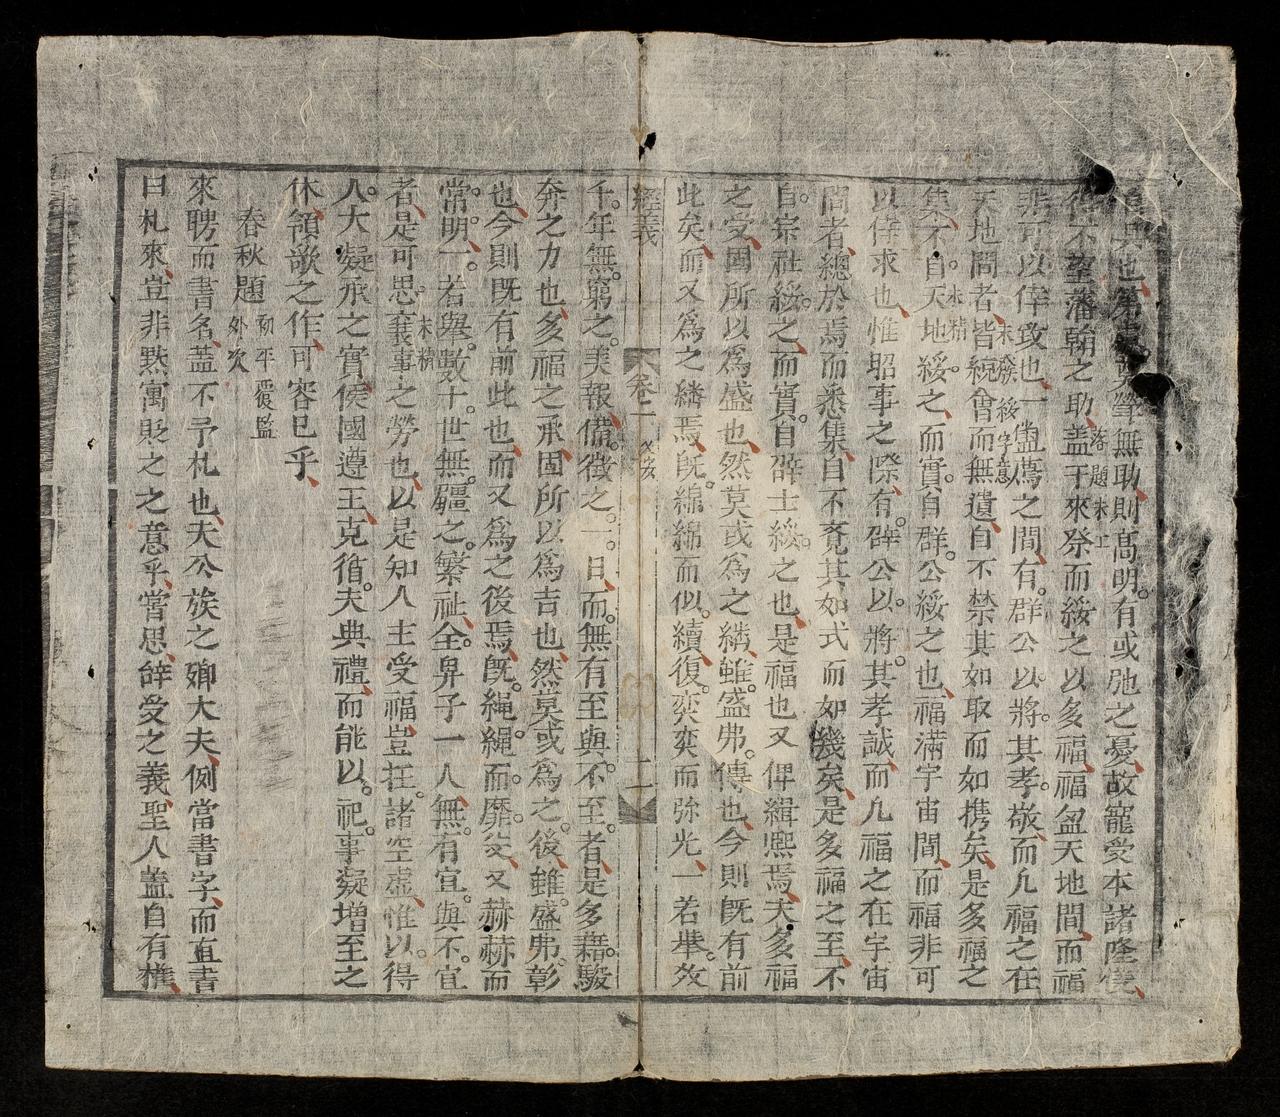 具也第無助則高明有或虺之憂故寵受本諸隆儀
得不望藩翰之助蓋于來祭而綏之以多福福盈天地間而福
落題未上
非可以倖致也一盥薦之間有群公以將其孝敬而凡福之在
天地間者皆統會而無遺自不禁其如取而如携矣是多福之
末發綏字意
集不自天地綏之而實自群公綏之也福滿宇宙間而福非可
未精
以倖求也惟昭事之際有辟公以將其孝誠而凡福之在宇宙
間者總於焉而悉集自不覺其如式而如幾矣是多福之至不
自宗社綏之而實自辟士綏之也是福也又俾緝熙焉夫多福
之受固所以為盛也然莫或為之繼雖盛弗傳也今則既有前
此矣而又為之繼焉既綿綿而似續復奕奕而弥光一若舉攸
經義
卷二
二
千年無窮之美報備徵之一日而無有至與不至者是多藉駿
奔之力也多福之承固所以為吉也然莫或為之後雖盛弗彰
也今則既有前此也而又為之後焉既繩繩而靡斁又赫赫而
當明一若舉數十世無疆之繁祉全畀子一人無有宜與不宜
者是可思襄事之勞也以是知人主受福豈在諸空虛惟以得
末精
人大凝承之實侯國遵王克循夫典禮而能以祀事凝增至之
休領歌之作可容已乎
春秋題
初平覆監
外次
來聘而書名蓋不予札也夫公族之卿大夫例當書字而直書
曰札來豈非默寓貶之之意乎嘗思辭受之義聖人蓋自有權